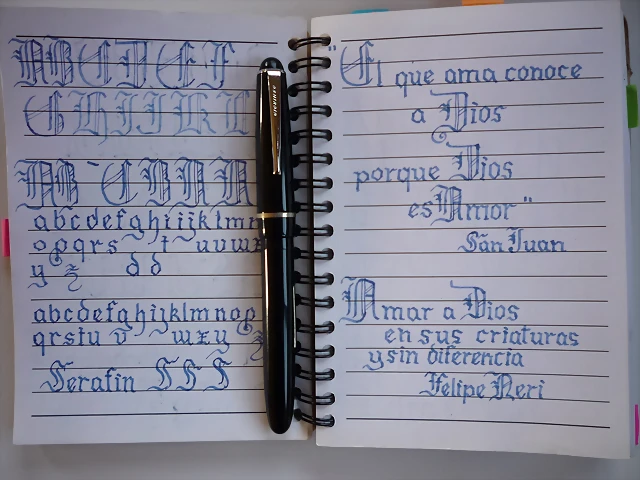 A B C D E F
G H I J K L
A B C B A A
abcdefghiijklmn
opqrs t uvwx
y z d d
abcdefghijklmnop
qrstu v wxy z
Serafin S S S
"El que ama conoce
a Dios
porque Dios
es Amor"
San Juan
Amar a Dios
en sus criaturas
y sin diferencia
Felipe Neri